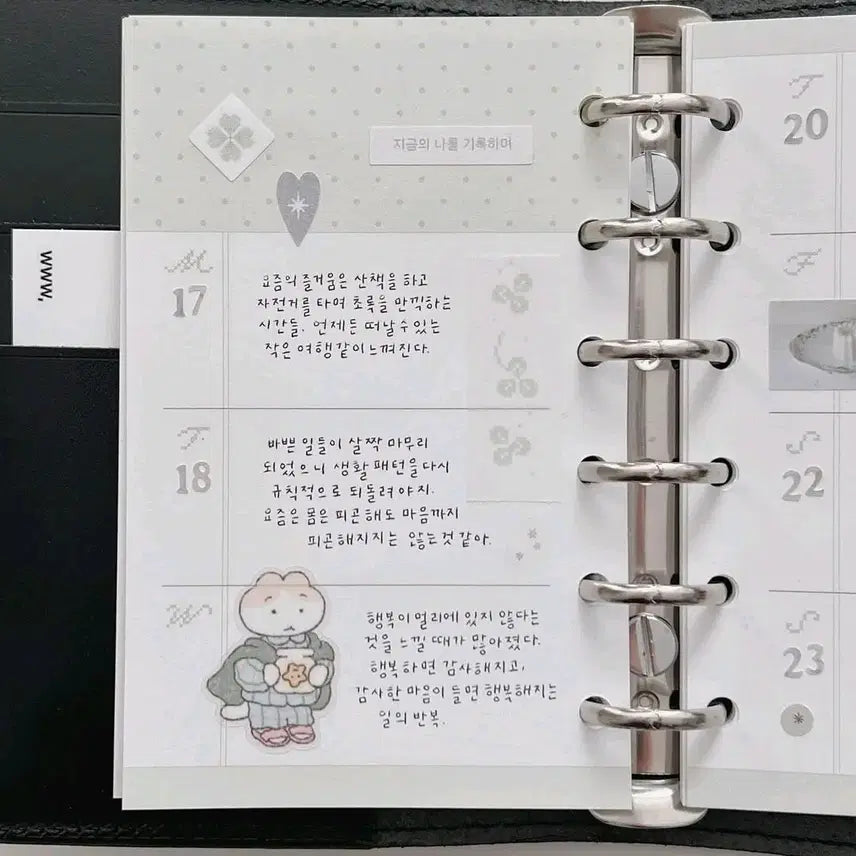 www.
지금의 나를 기록하며
M
17
요즘의 즐거움은 산책을 하고
자전거를 타며 초록을 만끽하는
시간들. 언제든 떠날 수 있는
작은 여행같이 느껴진다.
T
18
바쁜 일들이 살짝 마무리
되었으니 생활 패턴을 다시
규칙적으로 되돌려야지.
요즘은 몸은 피곤해도 마음까지
피곤해지지는 않는것 같아.
W
행복이 멀리에 있지 않다는
것을 느낄 때가 많아졌다.
행복하면 감사해지고,
감사한 마음이 들면 행복해지는
일의 반복.
T
20
F
S
22
S
23